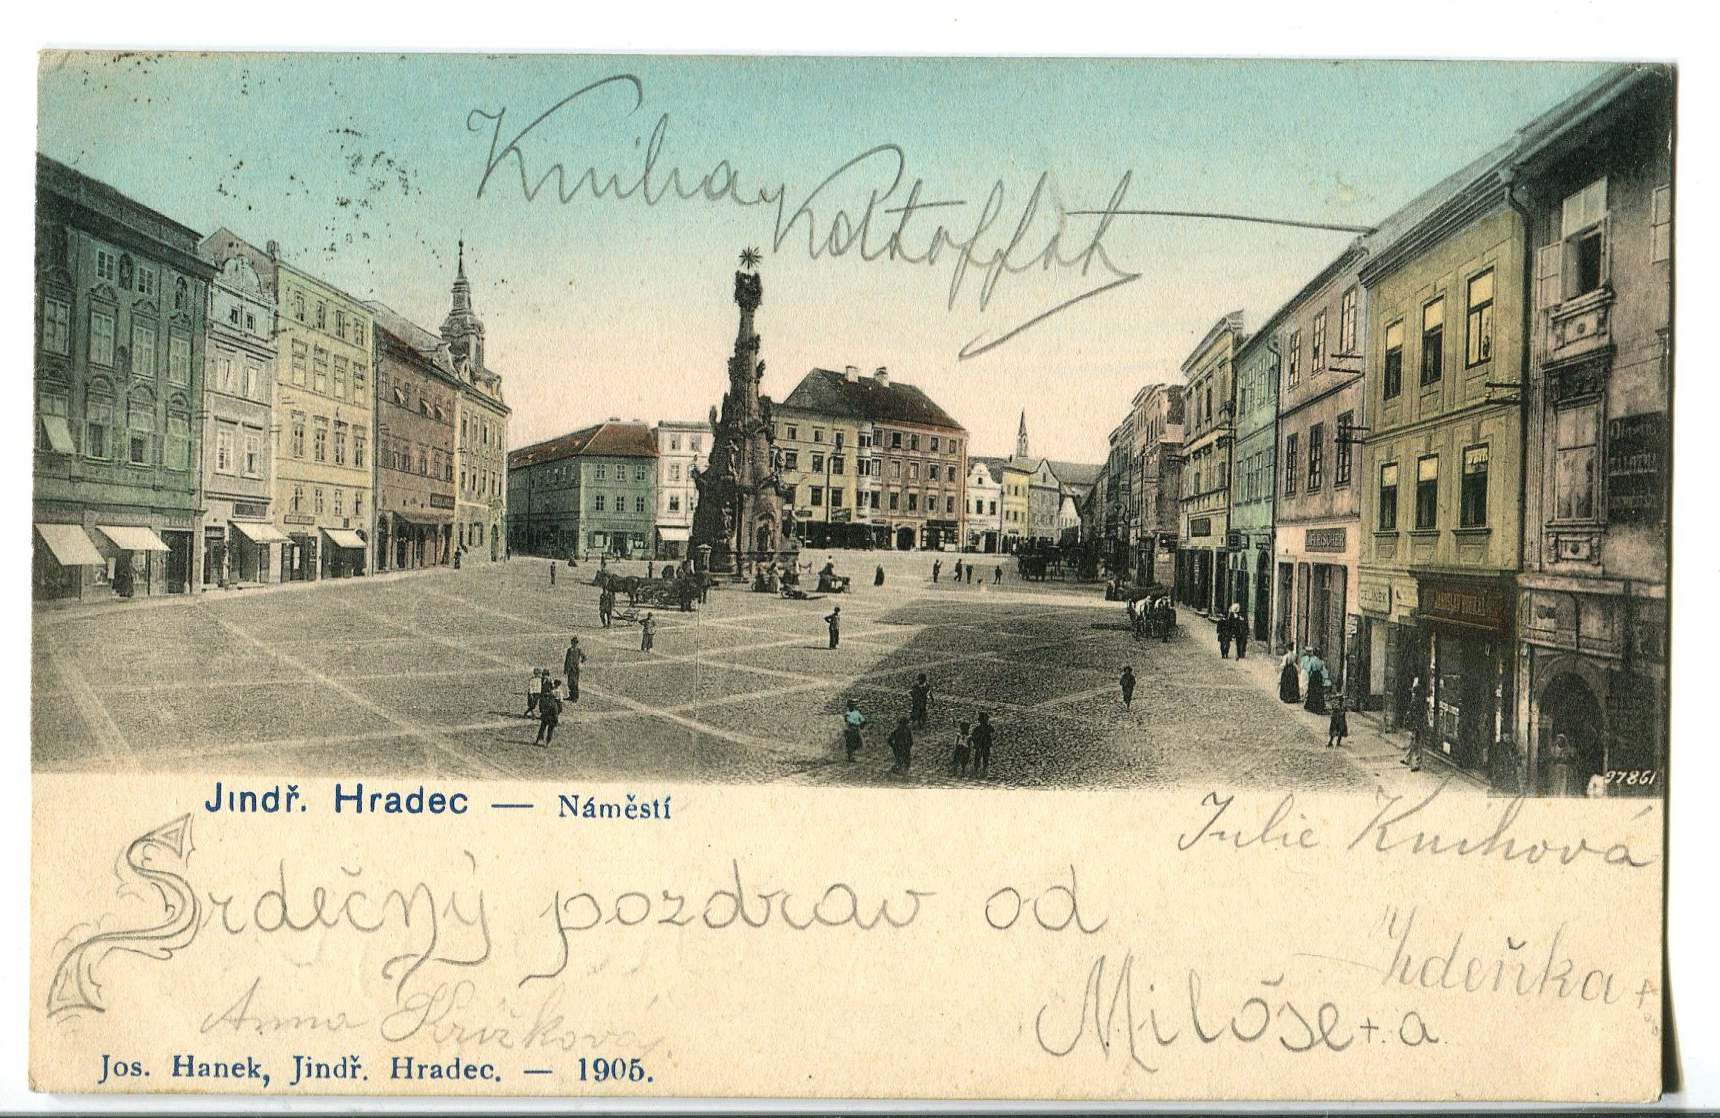 Kniha
97861
Jindř. Hradec — Náměstí
Julie Knihová
Srdečný pozdrav od
Zdeňka
Miloše + a
Anna Křížková
Jos. Hanek, Jindř. Hradec. — 1905.